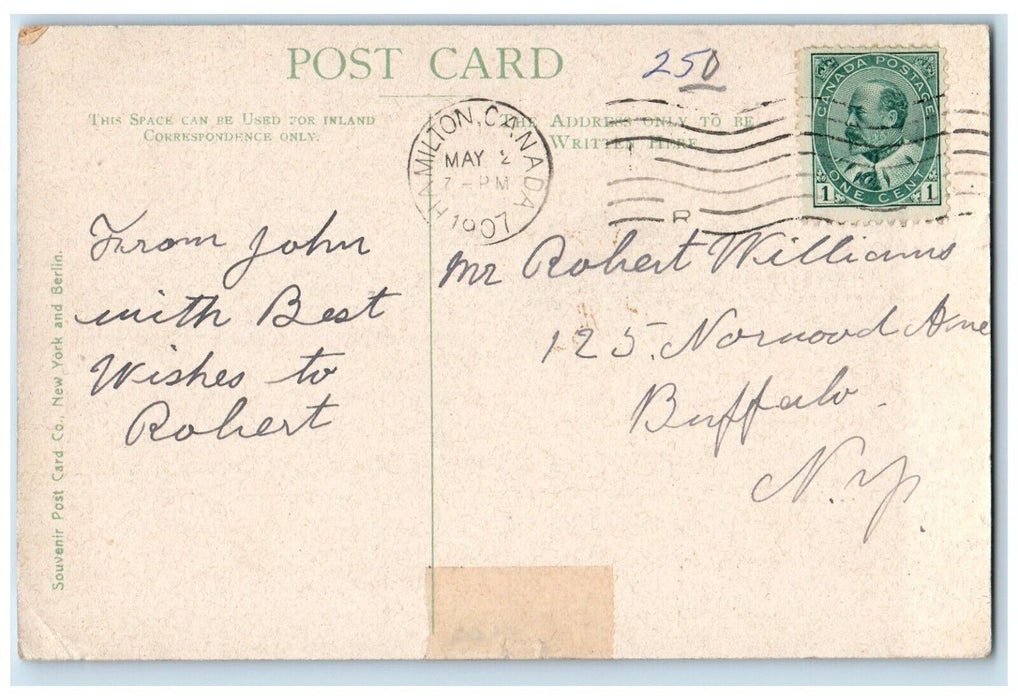 POST CARD
250
THIS SPACE CAN BE USED FOR INLAND
CORRESPONDENCE ONLY.
THE ADDRESS ONLY TO BE
WRITTEN HERE
HAMILTON, CANADA
MAY 2
7-PM
1907
R
CANADA POSTAGE
1 ONE CENT 1
From John
with Best
Wishes to
Robert
Mr Robert Williams
125. Norwood Ave
Buffalo.
N.Y.
Souvenir Post Card Co., New York and Berlin.